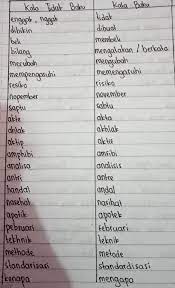 Kata Tidak Baku Kata Baku
enggak, nggak tidak
dibikin dibuat
bek
bilang mengatakan / berkata
merubah mengubah
mempengaruhi memengaruhi
resiko risiko
nopember november
saptu sabtu
akte akta
ahlak akhlak
aktip aktif
amphibi amfibi
analisa analisis
antri antre
handal andal
nasehat nasihat
apotik apotek
pebruari februari
tekhnik teknik
methode metode
standarisasi standardisasi
kenapa mengapa